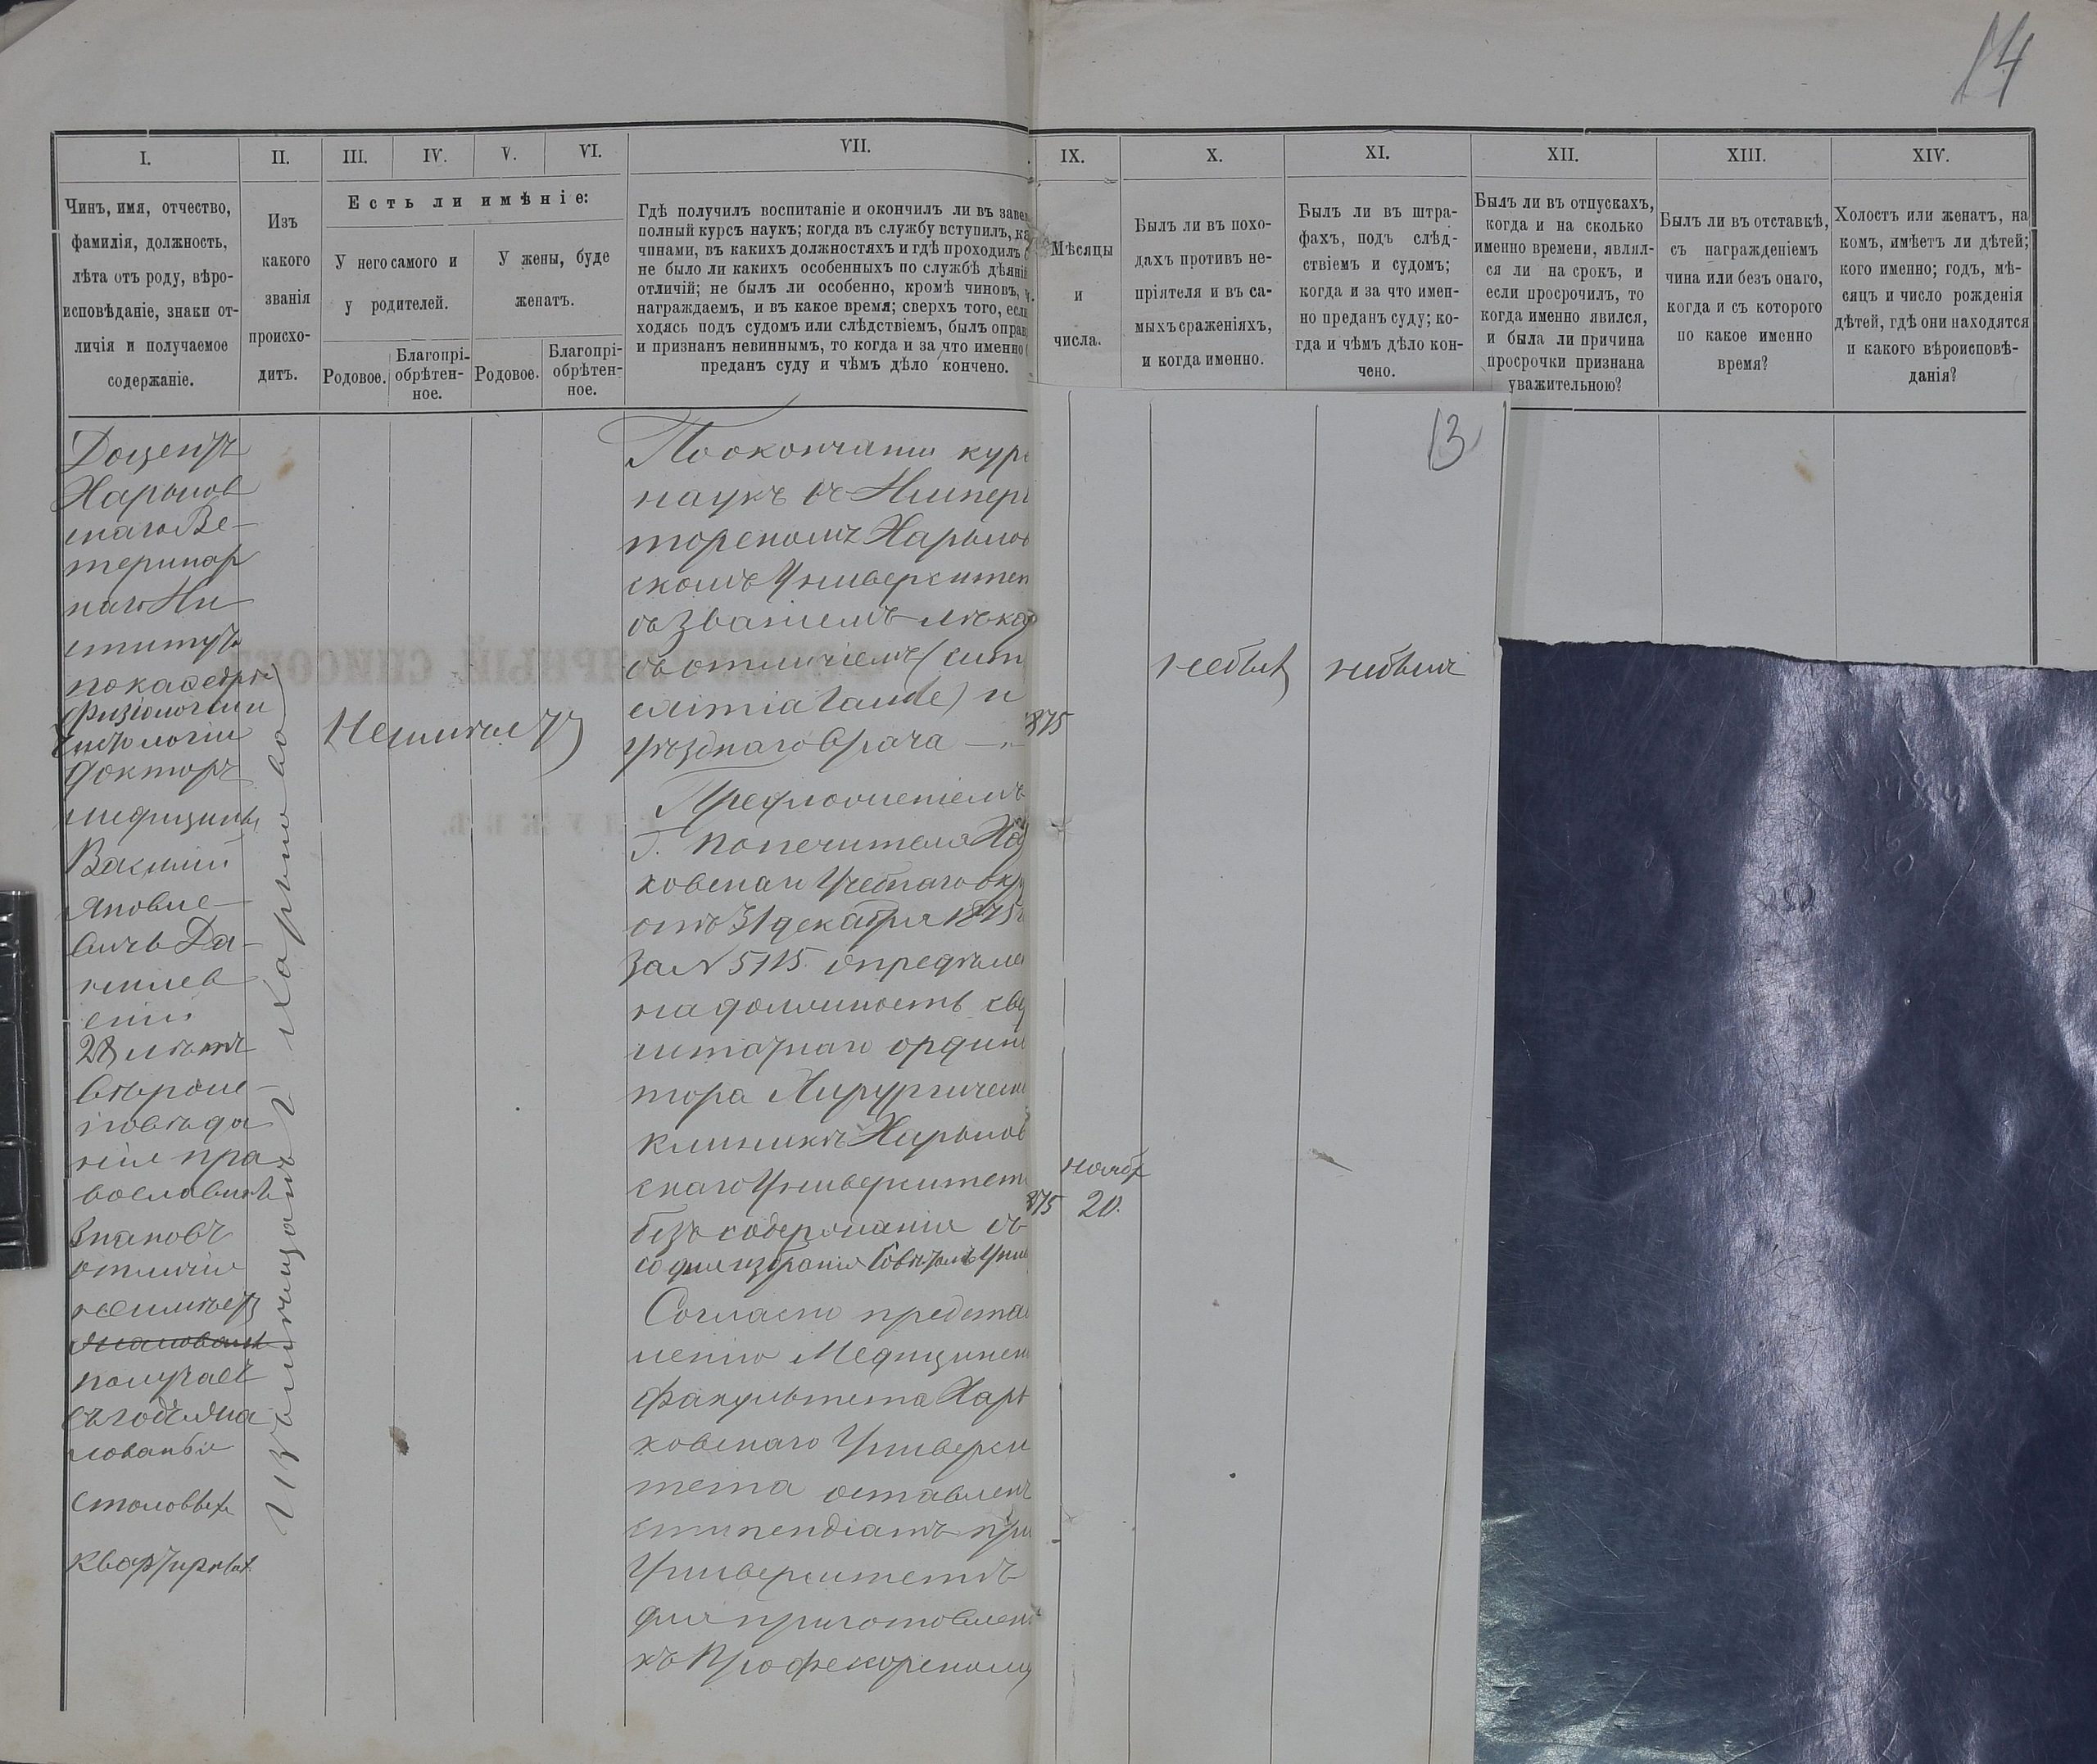 14
I.
II.
III.
IV.
V.
VI.
VII.
IX.
X.
XI.
XII.
XIII.
XIV.
Чинъ, имя, отчество,
фамилія, должность,
лѣта отъ роду, вѣро-
исповѣданіе, знаки от-
личія и получаемое
содержаніе.
Изъ
какого
званія
происхо-
дитъ.
Есть ли имѣніе:
У него самого и
у родителей.
У жены, буде
женатъ.
Родовое.
Благопрі-
обрѣтен-
ное.
Родовое.
Благопрі-
обрѣтен-
ное.
Гдѣ получилъ воспитаніе и окончилъ ли въ заве
полный курсъ наукъ; когда въ службу вступилъ, ка
чинами, въ какихъ должностяхъ и гдѣ проходилъ
не было ли какихъ особенныхъ по службѣ дѣяній
отличій; не былъ ли особенно, кромѣ чиновъ,
награждаемъ, и въ какое время; сверхъ того, если
ходясь подъ судомъ или слѣдствіемъ, былъ оправ
и признанъ невиннымъ, то когда и за что именно
преданъ суду и чѣмъ дѣло кончено.
Мѣсяцы
и
числа.
Былъ ли въ похо-
дахъ противъ не-
пріятеля и въ са-
мыхъ сраженіяхъ,
и когда именно.
Былъ ли въ штра-
фахъ, подъ слѣд-
ствіемъ и судомъ;
когда и за что имен-
но преданъ суду; ко-
гда и чѣмъ дѣло кон-
чено.
Былъ ли въ отпускахъ,
когда и на сколько
именно времени, являл-
ся ли на срокъ, и
если просрочилъ, то
когда именно явился,
и была ли причина
просрочки признана
уважительною?
Былъ ли въ отставкѣ,
съ награжденіемъ
чина или безъ онаго,
когда и съ котораго
по какое именно
время?
Холостъ или женатъ, на
комъ, имѣетъ ли дѣтей;
кого именно; годъ, мѣ-
сяцъ и число рожденія
дѣтей, гдѣ они находятся
и какого вѣроисповѣ-
данія?
Доцентъ
Харьков
скаго Ве-
теринар
наго Ин
ститута
по кафедрѣ
физіологіи
и гистологіи
докторъ
медицины
Василій
Яковле-
вичъ Да-
нилев
скій
28 лѣтъ
вѣроис-
повѣда
нія пра
вославнаго
знаковъ
отличія
неимѣетъ
получаетъ
въ годъ жа
лованья
столовыхъ
квартирныхъ
Изъ мѣщанъ г. Харькова
Неимѣетъ
По окончаніи кур
наукъ въ Импера
торскомъ Харьков
скомъ Университе
съ званіемъ лѣка
съ отличіемъ (cum
eximia laude) и
уѣзднаго врача
Предложеніемъ
Г. Попечителя Ха
ковскаго Учебнаго окр
отъ 31 декабря 1875
за N 5115 опредѣле
на должность све
штатнаго ордин
тора Хирургическ
клиникѣ Харьков
скаго Университет
безъ содержанія съ
со дня избранія Совѣтомъ Унив
Согласно предста
ленію Медицинск
факультета Харь
ковскаго Универси
тета оставленъ
стипендіатъ при
Университетѣ
для приготовлен
къ Профессорскому
13
875
небылъ
небылъ
нояб
875 20.